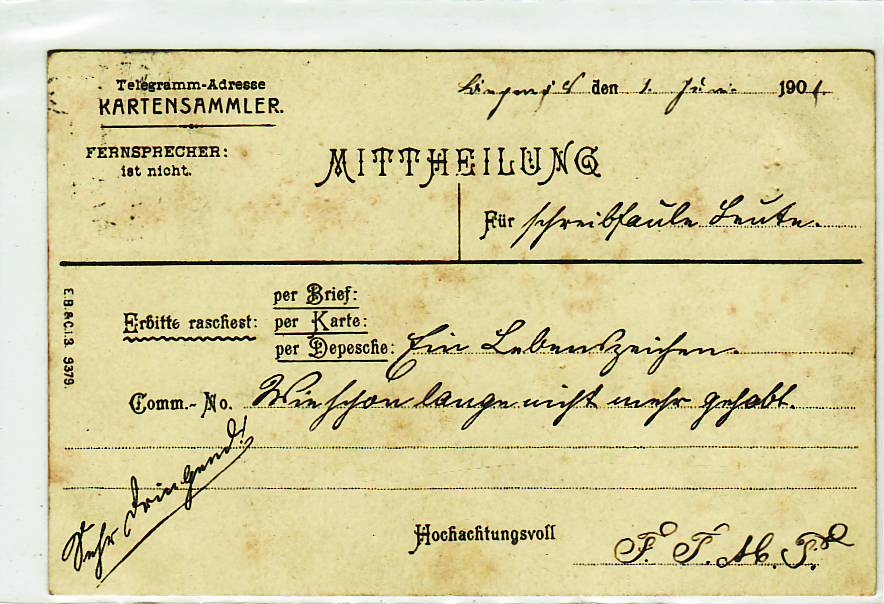 Telegramm-Adresse
KARTENSAMMLER.
den 1. Juni 1901.
FERNSPRECHER:
ist nicht.
MITTHEILUNG
Für schreibfaule Leute.
per Brief:
Erbitte raschest: per Karte:
per Depesche: Ein Lebenszeichen.
Comm.-No. Wie schon lange nicht mehr gehabt.
Sehr dringend!
Hochachtungsvoll
E.B.&C.i.S. 9379.